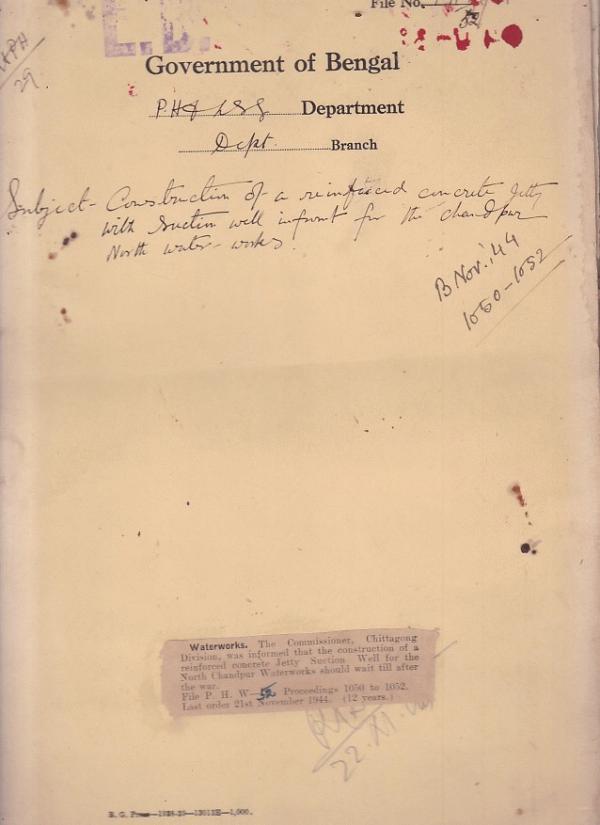 File No.
52
L.D.
29
Government of Bengal
P.H & LSG Department
Dept. Branch
Subject - Construction of a reinforced concrete Jetty
with Suction well infront for the Chandpur
North water-works.
B Nov. '44
1050-1052
Waterworks. The Commissioner, Chittagong
Division, was informed that the construction of a
reinforced concrete Jetty Suction Well for the
North Chandpur Waterworks should wait till after
the war.
File P. H. W—52 Proceedings 1050 to 1052.
Last order 21st November 1944. (12 years.)
22.XI.
B. G. Press—1,000.